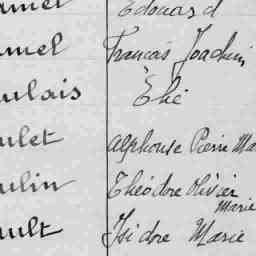 amel Edouard
amel Francois Joachim
ulais Elie
ulet Alphonse Pierre Ma
ulin Théodore Olivier
Marie
ault Isidore Marie